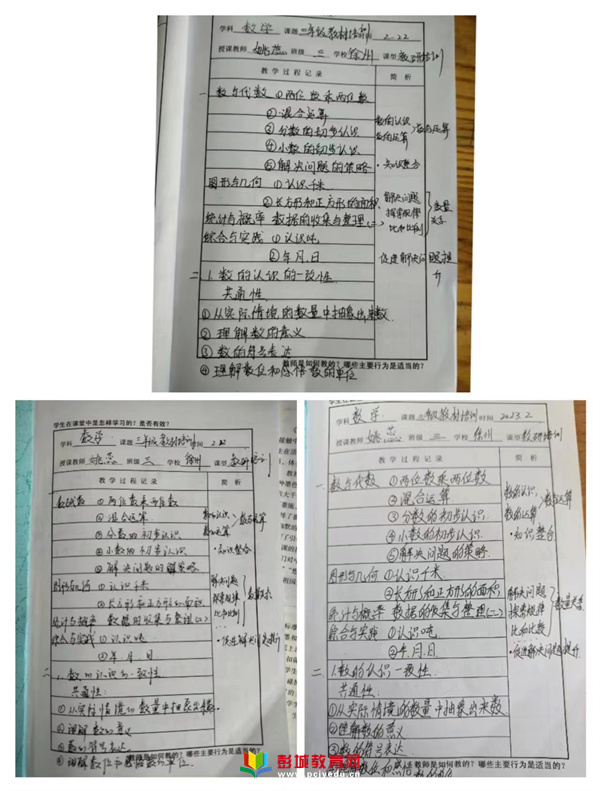 学科 数学 课题 三年级教材培训 2.22
授课教师 姚蕊 班级 三 学校 徐州 课型 教研培训
教学过程记录 简析
一 数与代数 ①两位数乘两位数
②混合运算
③分数的初步认识 数的认识
④小数的初步认识 数的运算
⑤解决问题的策略 ·知识整合
图形与几何 ①认识千米 解决问题
②长方形和正方形的面积 探索规律 数量关系
统计与概率 数据的收集与整理(二)
综合与实践 ①认识吨
②年.月.日
二 1.数的认识的一致性
共通性
①从实际情境的数量中抽象出来数
②理解数的意义
③数的符号表达
教师是如何教的?哪些主要行为是适当的?
④理解数位和
数的单位
学生在课堂中是怎样学习的?是否有效?
学科 数学 课题 三年级教材培训 时间 2.22
授课教师 姚蕊 班级 三 学校 徐州 课型 教研培训
教学过程记录 简析
数与代数 ①两位数乘两位数
②混合运算 数的认识
③分数的初步认识 数的运算
④小数的初步认识 ·知识整合
⑤解决问题的策略
图形与几何 ①认识千米 解决问题
②长方形和正方形的面积 探索规律
统计与概率 数据的收集与整理(二)
综合与实践 ①认识吨
②年.月.日
二 1.数的认识的一致性
共通性:
①从实际情境的数量中抽象出数
②理解数的意义
③数的符号表达
教师是如何教的?哪些主要行为是适当的?
④理解数位和
数的单位
学科 数学 课题 三年级教材培训 时间 2023.2
授课教师 姚蕊 班级 三 学校 徐州 课型 教研培训
教学过程记录 简析
一 数与代数 ①两位数乘两位数
②混合运算 数的认识
③分数的初步认识 数的运算
④小数的初步认识 ·知识整合
⑤解决问题的策略
图形与几何 ①认识千米 解决问题
②长方形和正方形的面积 探索规律 数量关系
统计与概率 数据的收集与整理(二)
综合与实践 ①认识吨
②年.月.日
二 1.数的认识一致性
共通性
①从实际情境的数量中抽象出来数
②理解数的意义
③数的符号表达
教师是如何教的?哪些主要行为是适当的?
彭城教育网
www.pcjyedu.com